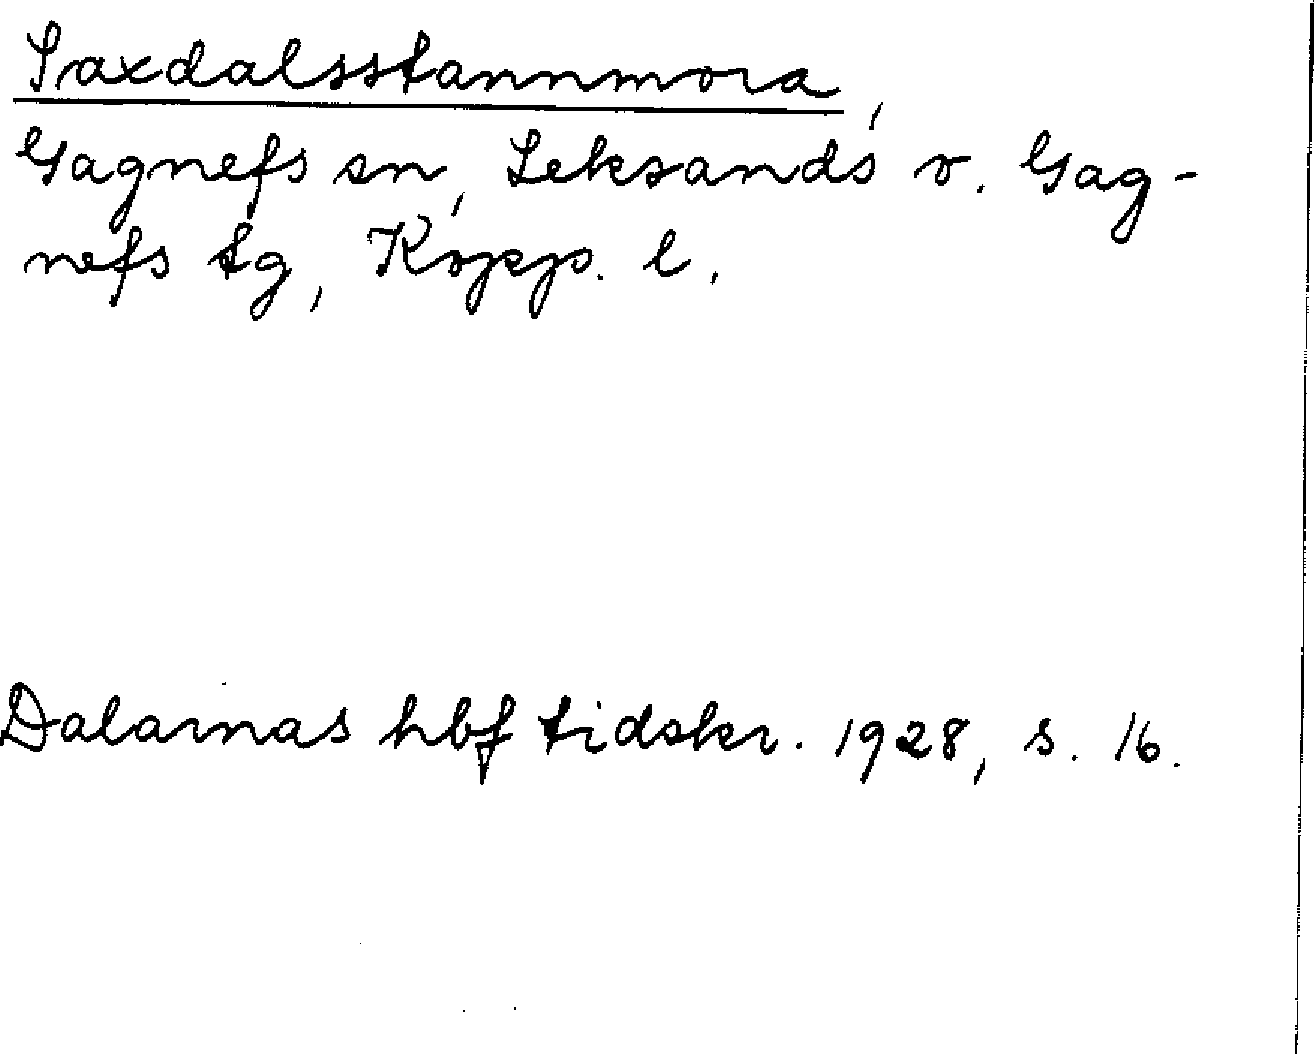 Saxdalsstannmora,
Gagnefs sn, Leksands o. Gag-
nefs tg, Kopp. l.
Dalarnas hbf tidskr. 1928, s. 16.